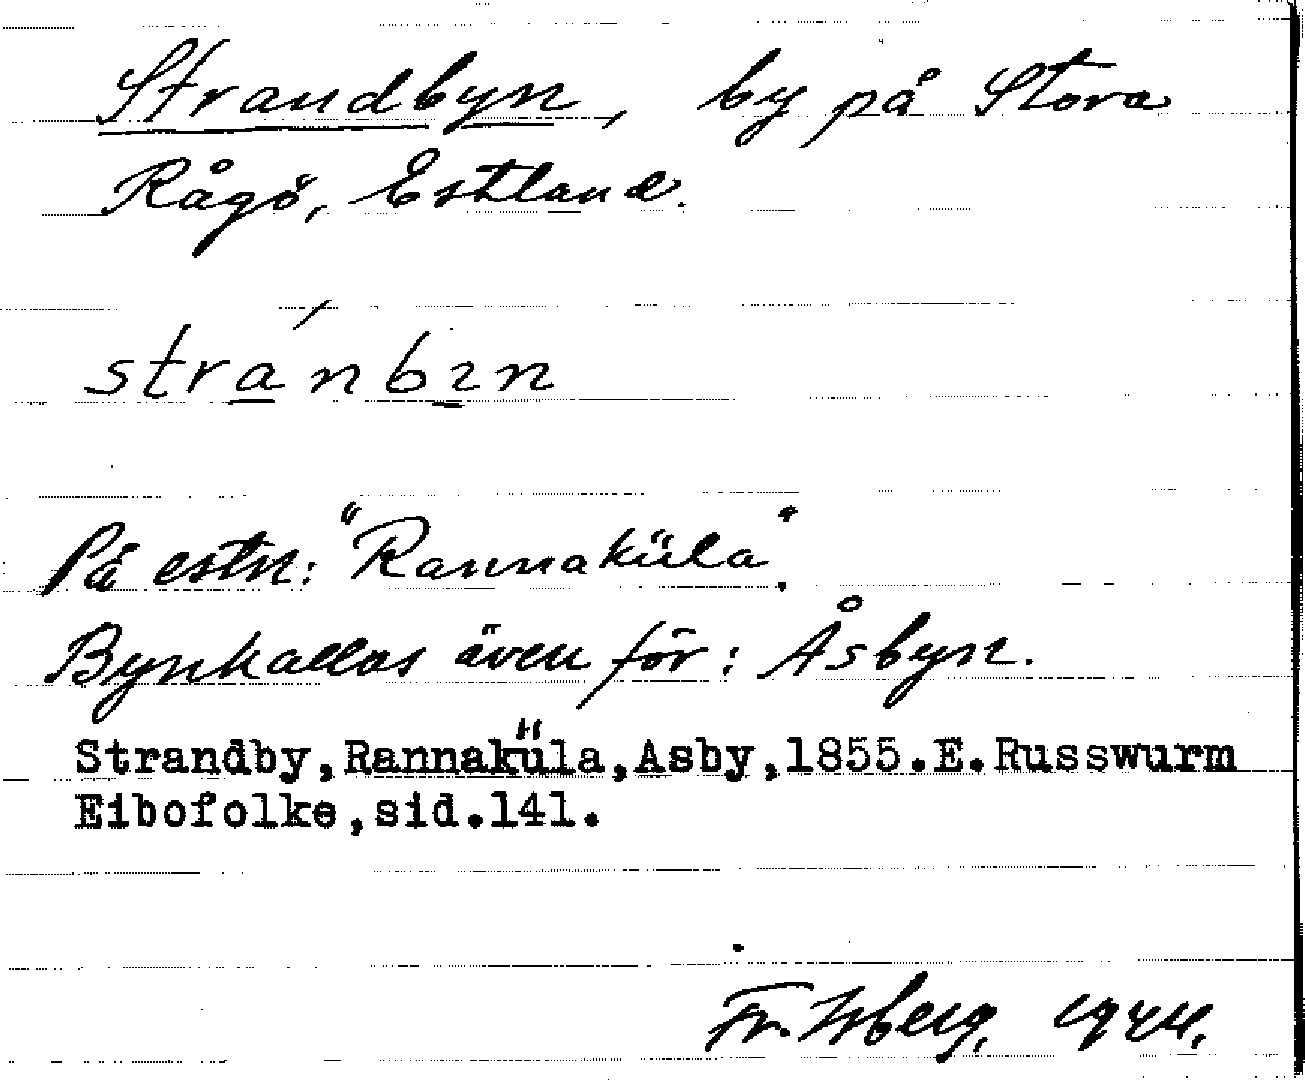 Strandbyn, by på Stora
Rågö, Estland.
stránbın
På estn: "Rannaküla".
Bynkallas även för: Åsbyn.
Strandby,Rannaküla,Asby,1855.E.Russwurm
Eibofolke,sid.141.
Fr. Isberg, 1924.